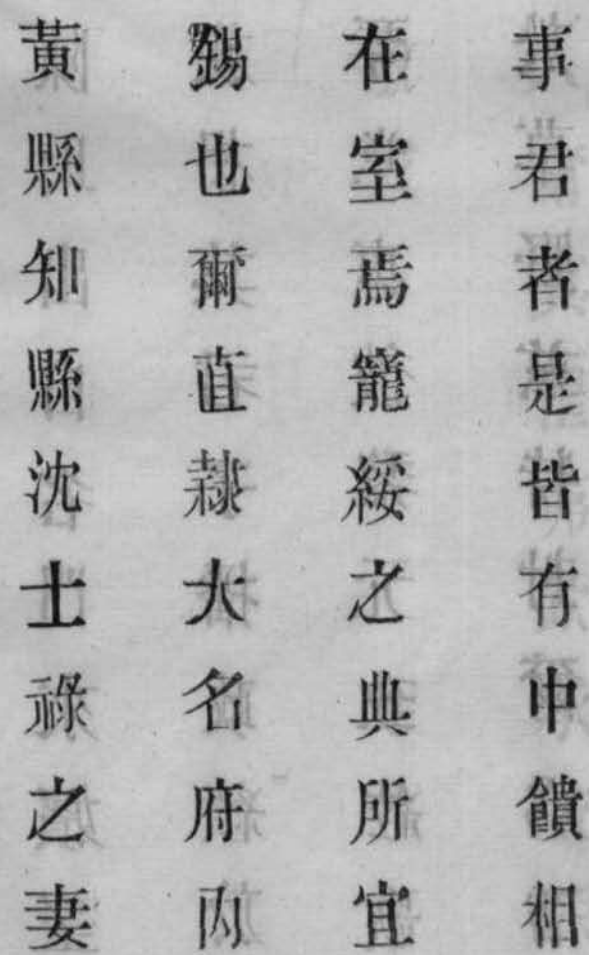 事君者是皆有中饋相
在室焉籠綏之典所宜
錫也爾直隷大名府内
黃縣知縣沈士祿之妻